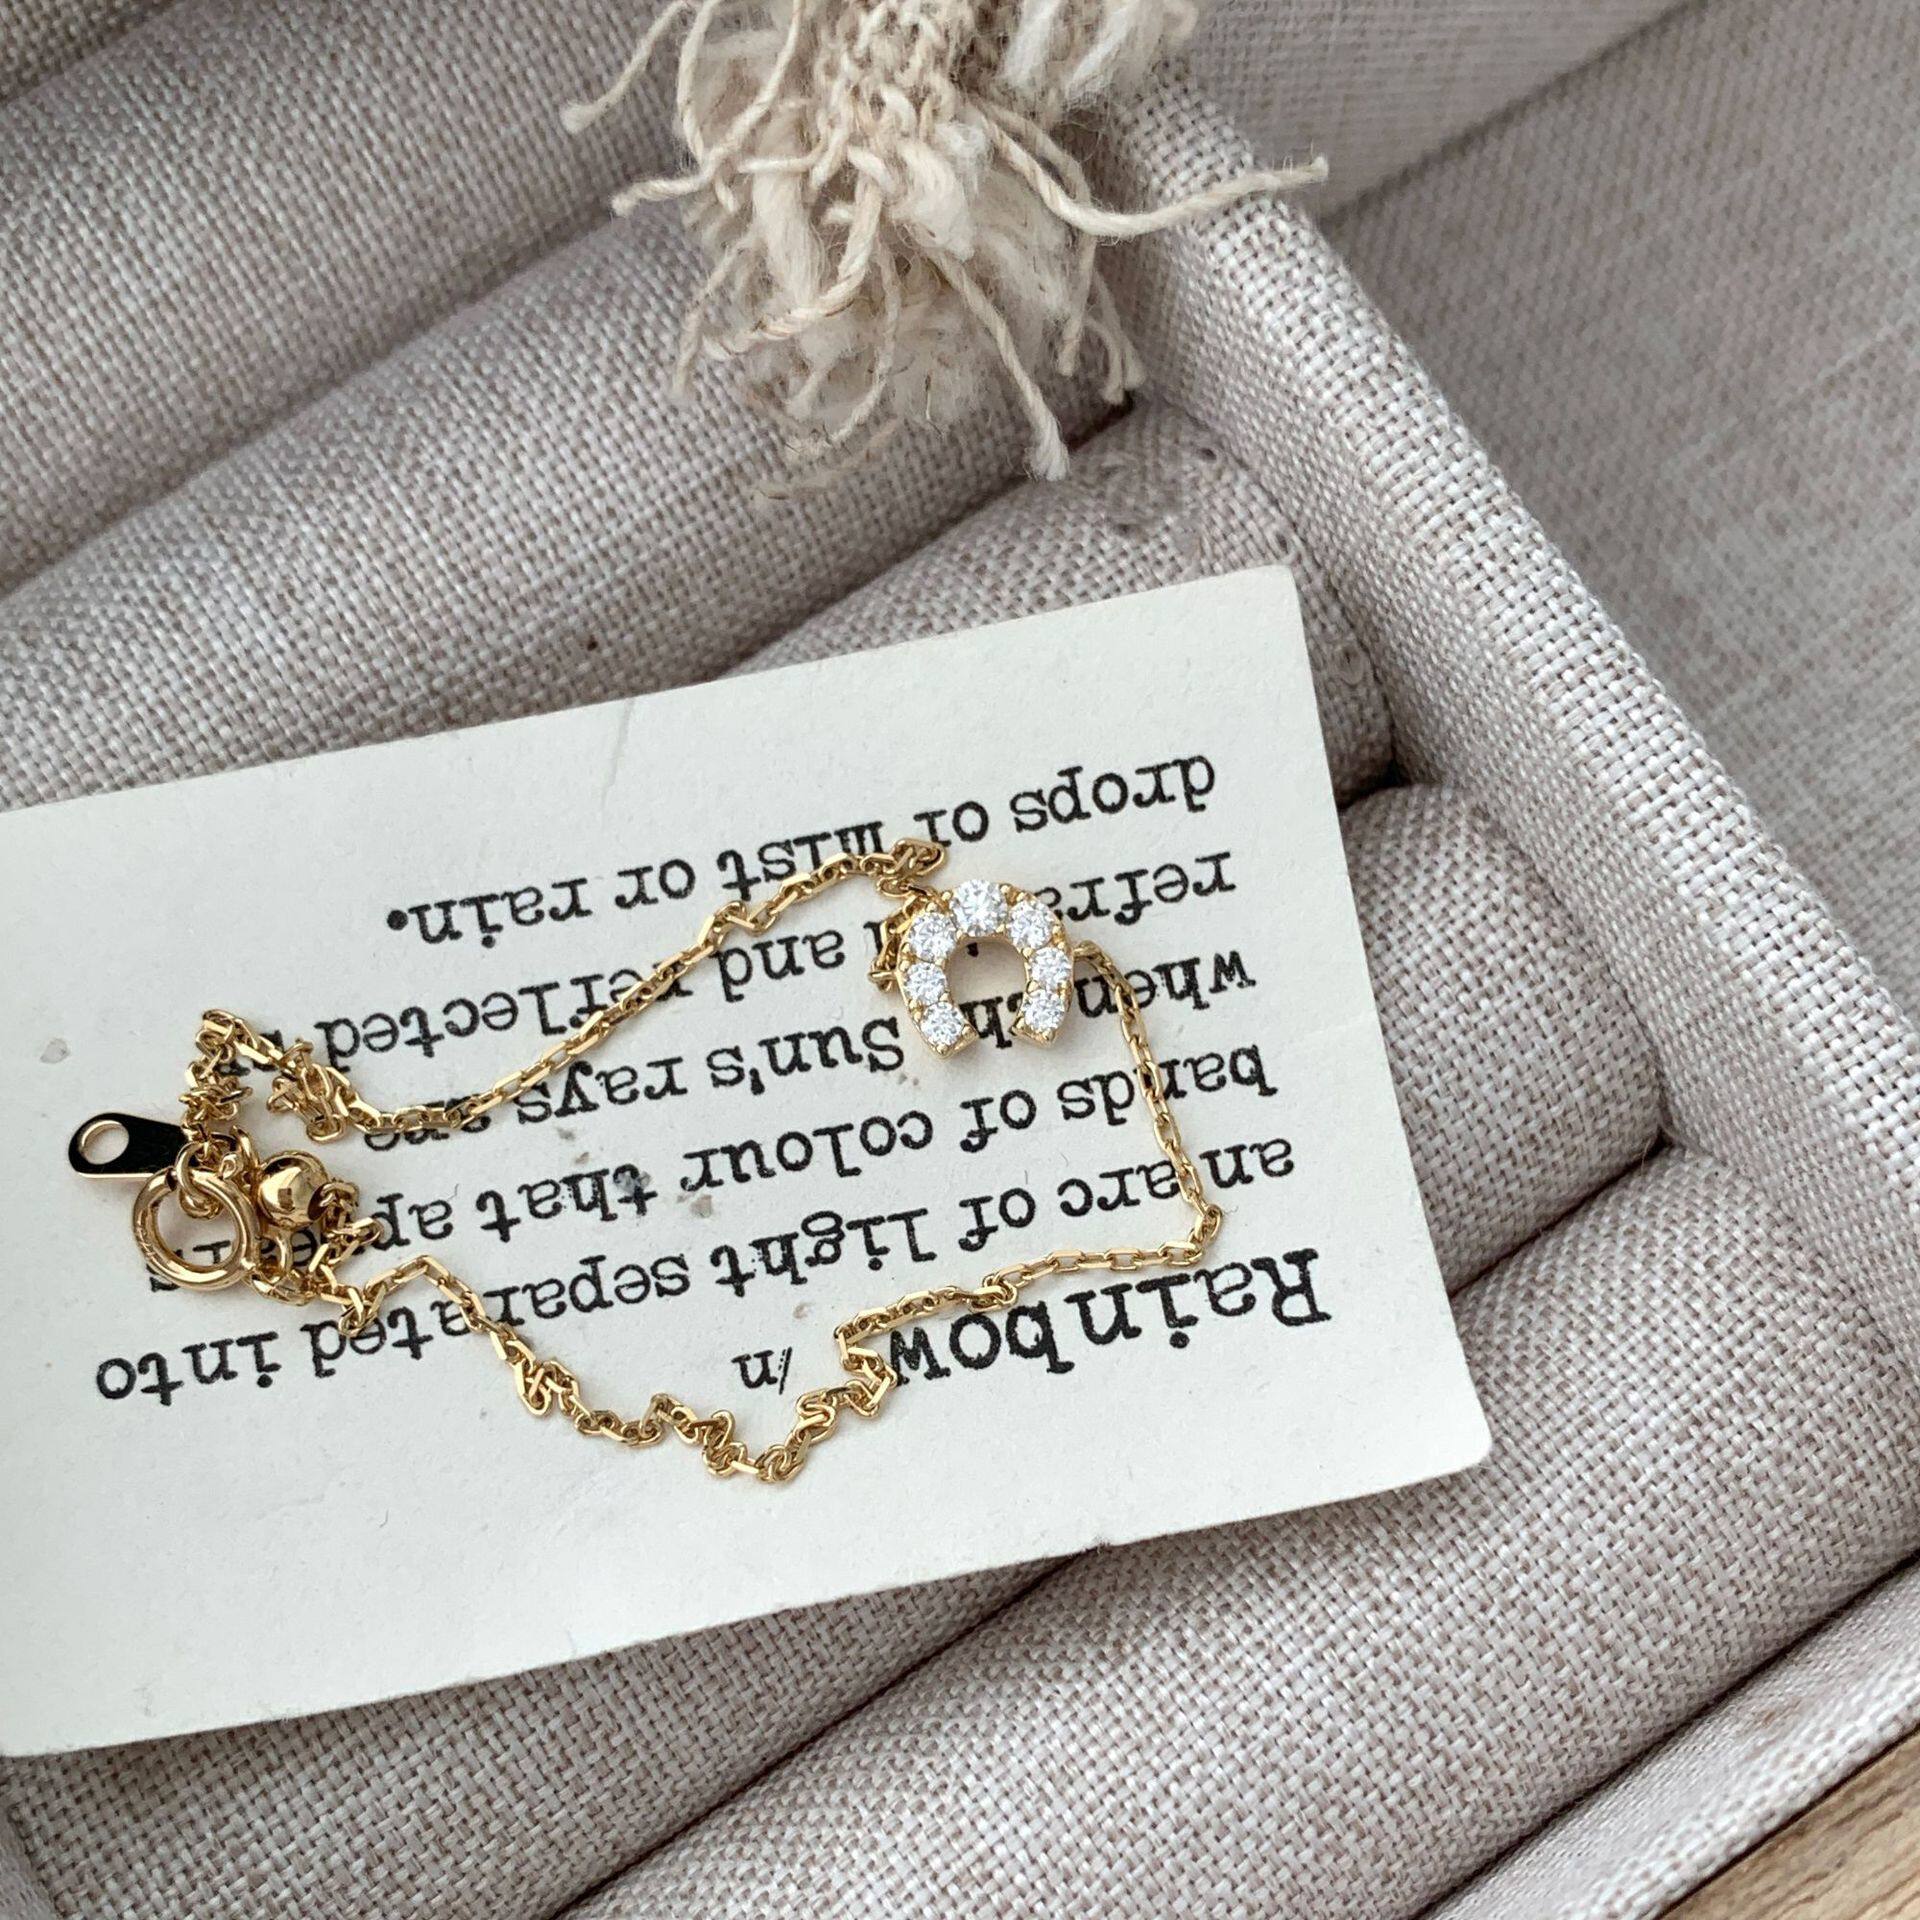 Rainbow /n
an arc of light separated into
bands of colour that appears
when the Sun's rays are
refracted and reflected by
drops of mist or rain.